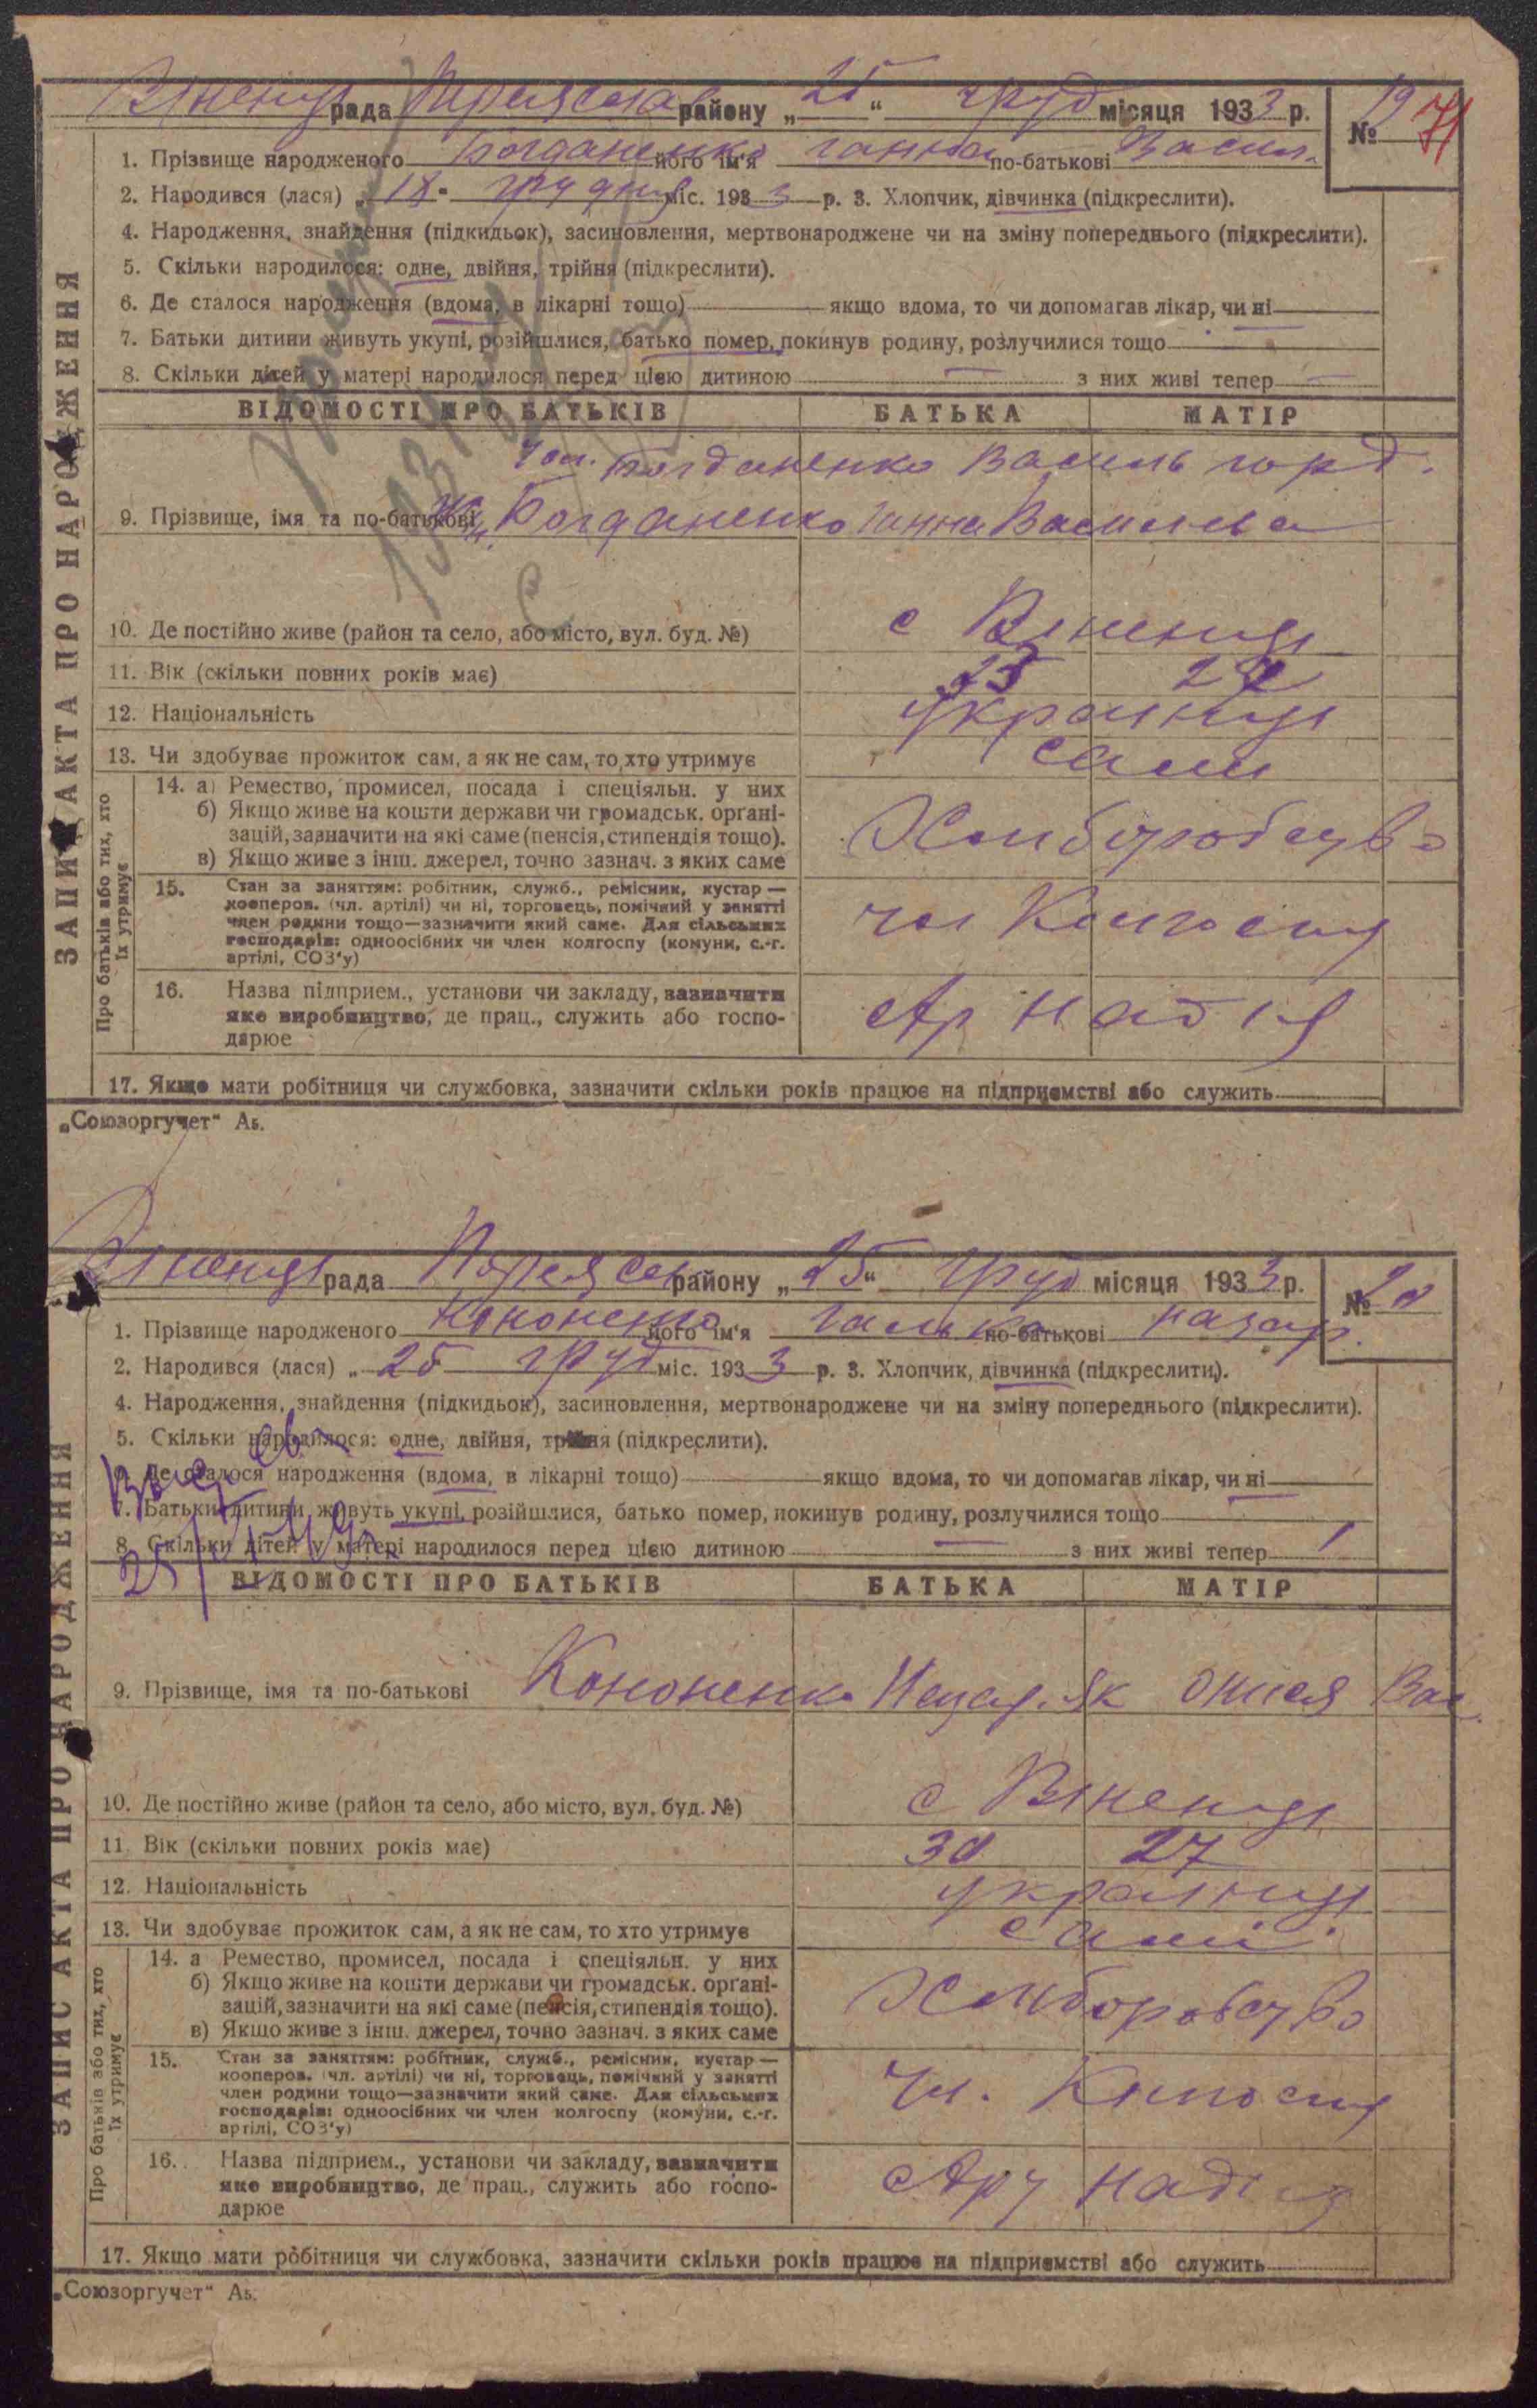 рада Переяслав району „25“ груд місяця 1933 р. № 19 71
1. Прізвище народженого Богданенко його ім'я Ганна по-батькові Васил.
2. Народився (лася) „18" грудня міс. 1933 р. 3. Хлопчик, дівчинка (підкреслити).
4. Народження, знайдення (підкидьок), засиновлення, мертвонароджене чи на зміну попереднього (підкреслити).
5. Скільки народилося: одне, двійня, трійня (підкреслити).
6. Де сталося народження (вдома, в лікарні тощо) якщо вдома, то чи допомагав лікар, чи ні
7. Батьки дитини живуть укупі, розійшлися, батько помер, покинув родину, розлучилися тощо
8. Скільки дітей у матері народилося перед цією дитиною — з них живі тепер —
ВІДОМОСТІ ПРО БАТЬКІВ БАТЬКА МАТІР
Чол. Богданенко Василь Горд.
9. Прізвище, імя та по-батькові Жін. Богданенко Ганна Василева
10. Де постійно живе (район та село, або місто, вул. буд. №) с
11. Вік (скільки повних років має) 23
12. Національність українці
13. Чи здобуває прожиток сам, а як не сам, то хто утримує сами
14. а) Ремество, промисел, посада і спеціяльн. у них
б) Якщо живе на кошти держави чи громадськ. орґані-
зацій, зазначити на які саме (пенсія, стипендія тощо).
в) Якщо живе з інш. джерел, точно зазнач. з яких саме
Хліборобство
15. Стан за заняттям: робітник, служб., ремісник, кустар —
кооперов. (чл. артілі) чи ні, торговець, помічний у занятті
член родини тощо—зазначити який саме. Для сільських
господарів: одноосібних чи член колгоспу (комуни, с.-г.
артілі, СОЗ'у)
чл Колгоспу
16. Назва підприєм., установи чи закладу, зазначити
яке виробництво, де прац., служить або госпо-
дарює
Ар Надія
17. Якщо мати робітниця чи службовка, зазначити скільки років працює на підприємстві або служить
„Союзоргучет“ Аь.
ЗАПИС АКТА ПРО НАРОДЖЕННЯ
Про батьків або тих, хто
їх утримує
рада Переяслав району „25“ груд місяця 1933 р. № 20
1. Прізвище народженого Кононенко його ім'я Галька по-батькові Назар.
2. Народився (лася) „25 груд міс. 1933 р. 3. Хлопчик, дівчинка (підкреслити).
4. Народження, знайдення (підкидьок), засиновлення, мертвонароджене чи на зміну попереднього (підкреслити).
5. Скільки народилося: одне, двійня, трійня (підкреслити).
6. Де сталося народження (вдома, в лікарні тощо) якщо вдома, то чи допомагав лікар, чи ні
7. Батьки дитини живуть укупі, розійшлися, батько помер, покинув родину, розлучилися тощо
8. Скільки дітей у матері народилося перед цією дитиною — з них живі тепер 1
ВІДОМОСТІ ПРО БАТЬКІВ БАТЬКА МАТІР
9. Прізвище, імя та по-батькові Кононенко Назар. Як Онися Вас.
10. Де постійно живе (район та село, або місто, вул. буд. №) с
11. Вік (скільки повних років має) 30 27
12. Національність українці
13. Чи здобуває прожиток сам, а як не сам, то хто утримує самі
14. а Ремество, промисел, посада і спеціяльн. у них
б) Якщо живе на кошти держави чи громадськ. орґані-
зацій, зазначити на які саме (пенсія, стипендія тощо).
в) Якщо живе з інш. джерел, точно зазнач. з яких саме
Хліборобство
15. Стан за заняттям: робітник, служб., ремісник, кустар —
кооперов. (чл. артілі) чи ні, торговець, помічний у занятті
член родини тощо—зазначити який саме. Для сільських
господарів: одноосібних чи член колгоспу (комуни, с.-г.
артілі, СОЗ'у)
Чл. Колгоспу
16. Назва підприєм., установи чи закладу, зазначити
яке виробництво, де прац., служить або госпо-
дарює
Надія
17. Якщо мати робітниця чи службовка, зазначити скільки років працює на підприємстві або служить
„Союзоргучет“ Аь.
ЗАПИС АКТА ПРО НАРОДЖЕННЯ
Про батьків або тих, хто
їх утримує